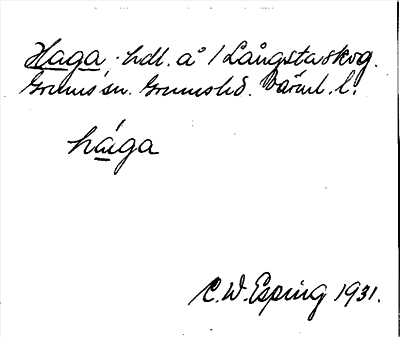 Haga, hdl. å 1 Långstaskog.
Grums sn. Grums hd. Värml. l.
hága
C.W. Esping 1931.